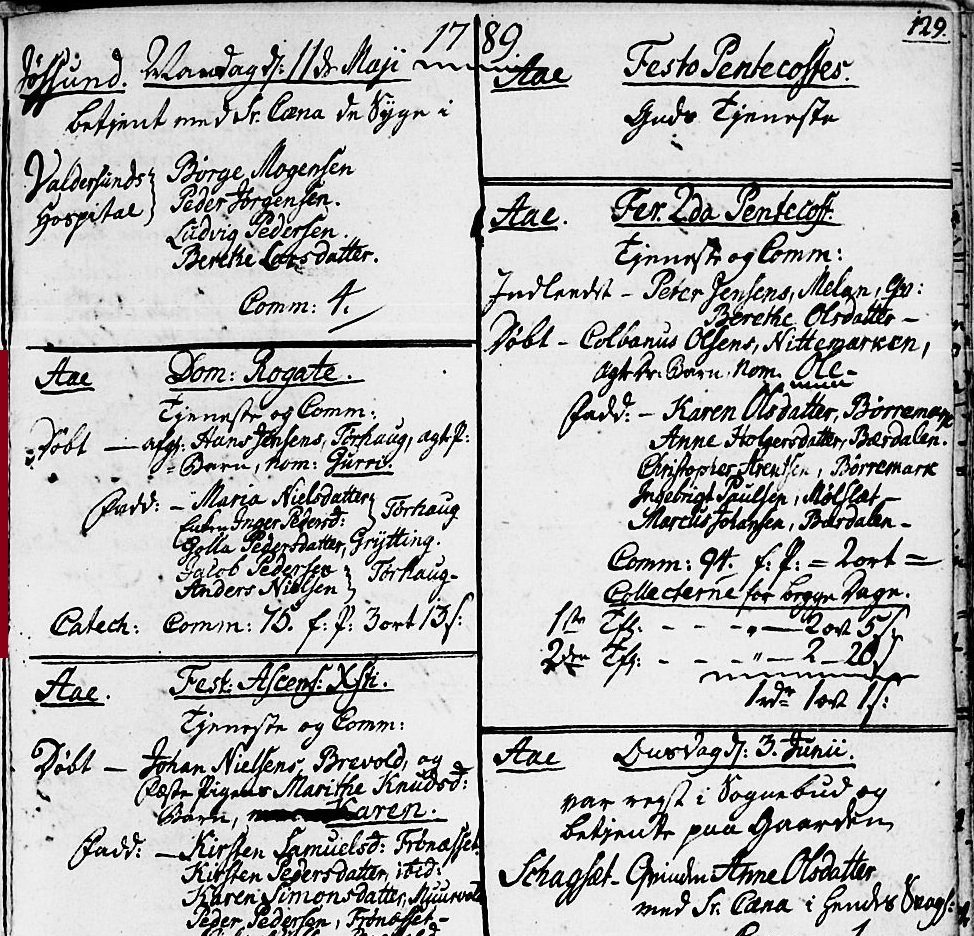 1789.
129.
Jøssund. Mandag d: 11de Maji
betjent med Sr. Cæna de Syge i
Valdersunds Hospital } Børge Mogensen
Peder Jørgensen.
Ludvig Pedersen.
Berethe Larsdatter.
Comm: 4.
Aae Dom: Rogate.
Tjeneste og Comm:
Døbt — Hans Jensens, Torhaug, ægte
Barn, nom: Gurri.
Fadd: — Maria Nielsdatter } Torhaug
Inger Pedersd:
Golla Pedersdatter, Grytting.
Jacob Pedersen } Torhaug
Anders Nielsen
Catech: Comm: 75. f: P: 3 ort 13 s:
Aae. Fest: Ascens: Xsti.
Tjeneste og Comm:
Døbt — Johan Nielsens, Brevold, og
Fæste Pigens Marithe Knudsd:
Barn, Karen.
Fadd: — Kirsten Samuelsd: Frønæsset.
Kirsten Pedersdatter, ibid:
Karen Simonsdatter,
Peder Pedersen, Frønæsset —
Aae Festo Pentecostes.
Guds Tjeneste
Aae. Fer. 2da Pentecost.
Tjeneste og Comm:
Indledet — Peter Jensens, Melan, Qv:
Berethe Olsdatter —
Døbt — Colbanus Olsens, Nittemarken,
Barn, nom. Ole —
Fadd: — Karen Olsdatter, Børremark
Anne Holgersdatter, Bærdalen.
Christopher Arentsen, Børremark
Ingebrigt Paulsen, Mølslæt —
Marcus Johansen, Bærdalen —
Comm: 94. f: P: = 2 ort =
Collecterne for begge Dage.
1ste Tjs: - - - " — 2 ort 5 s:
2den Tjs: - - - " — 2 — 20 s
1 rdr 1 ort 1 s:
Aae Onsdag d: 3. Junii.
var reist i Sognebud og
betjente paa Gaarden
Schagsæt — Qvinden Anne Olsdatter
med Sr. Cæna i hendes Svagh: